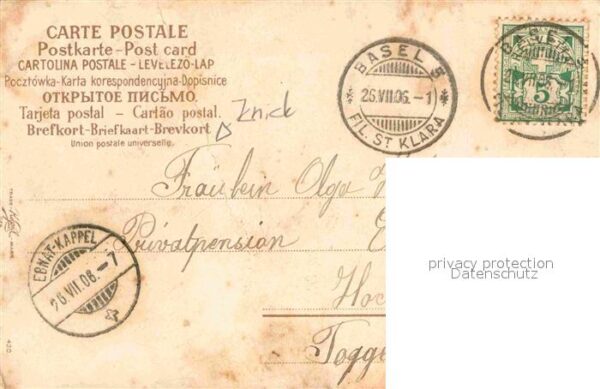 CARTE POSTALE
Postkarte - Post card
CARTOLINA POSTALE - LEVELEZŐ-LAP
Pocztówka - Karta korespondencyjna - Dopisnice
ОТКРЫТОЕ ПИСЬМО.
Tarjeta postal - Cartão postal.
Brefkort - Briefkaart - Brevkort
Union postale universelle.
Znick
BASEL 5
26.VII.06.-1
FIL. ST. KLARA
BASEL
5
Fräulein Olga
Privatpension E
Hoc
Togge
EBNAT-KAPPEL
26.VII.06.-7
TRADE MARK
420
privacy protection
Datenschutz